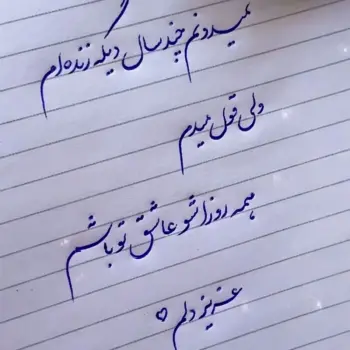 نمیدونم چند سال دیگه زنده‌ام
ولی قول میدم
همه روزاشو عاشق تو باشم
عزیز دلم ♡